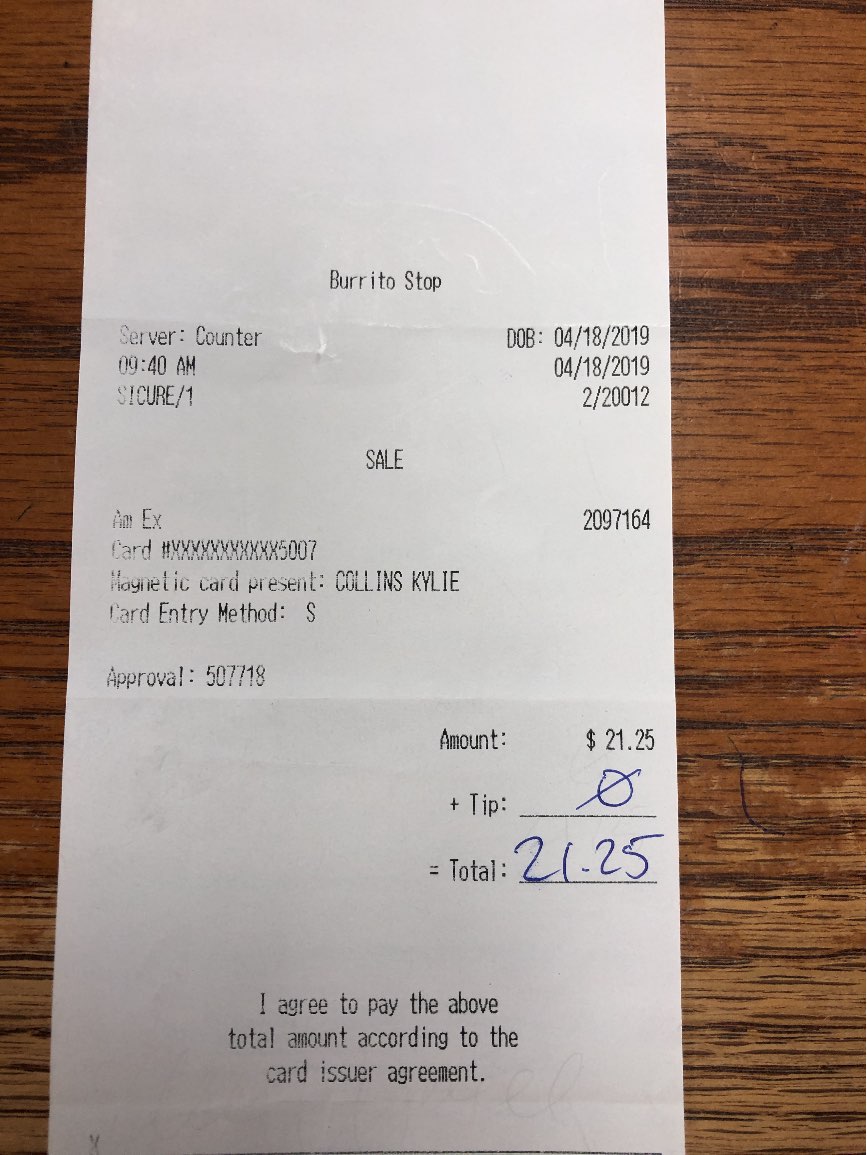 Burrito Stop
Server: Counter DOB: 04/18/2019
09:40 AM 04/18/2019
SICURE/1 2/20012
SALE
Am Ex 2097164
Card #XXXXXXXXXXX5007
Magnetic card present: COLLINS KYLIE
Card Entry Method: S
Approval: 507718
Amount: $ 21.25
+ Tip: Ø
= Total: 21.25
I agree to pay the above
total amount according to the
card issuer agreement.
X